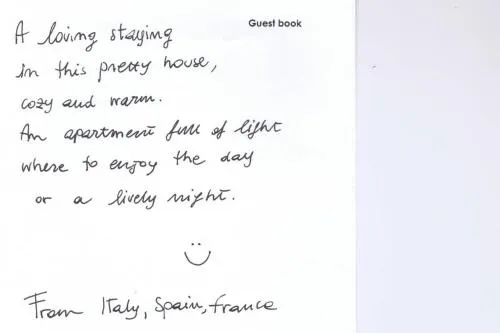 Guest book
A loving staying
in this pretty house,
cozy and warm.
An apartment full of light
where to enjoy the day
or a lively night.
From Italy, Spain, France